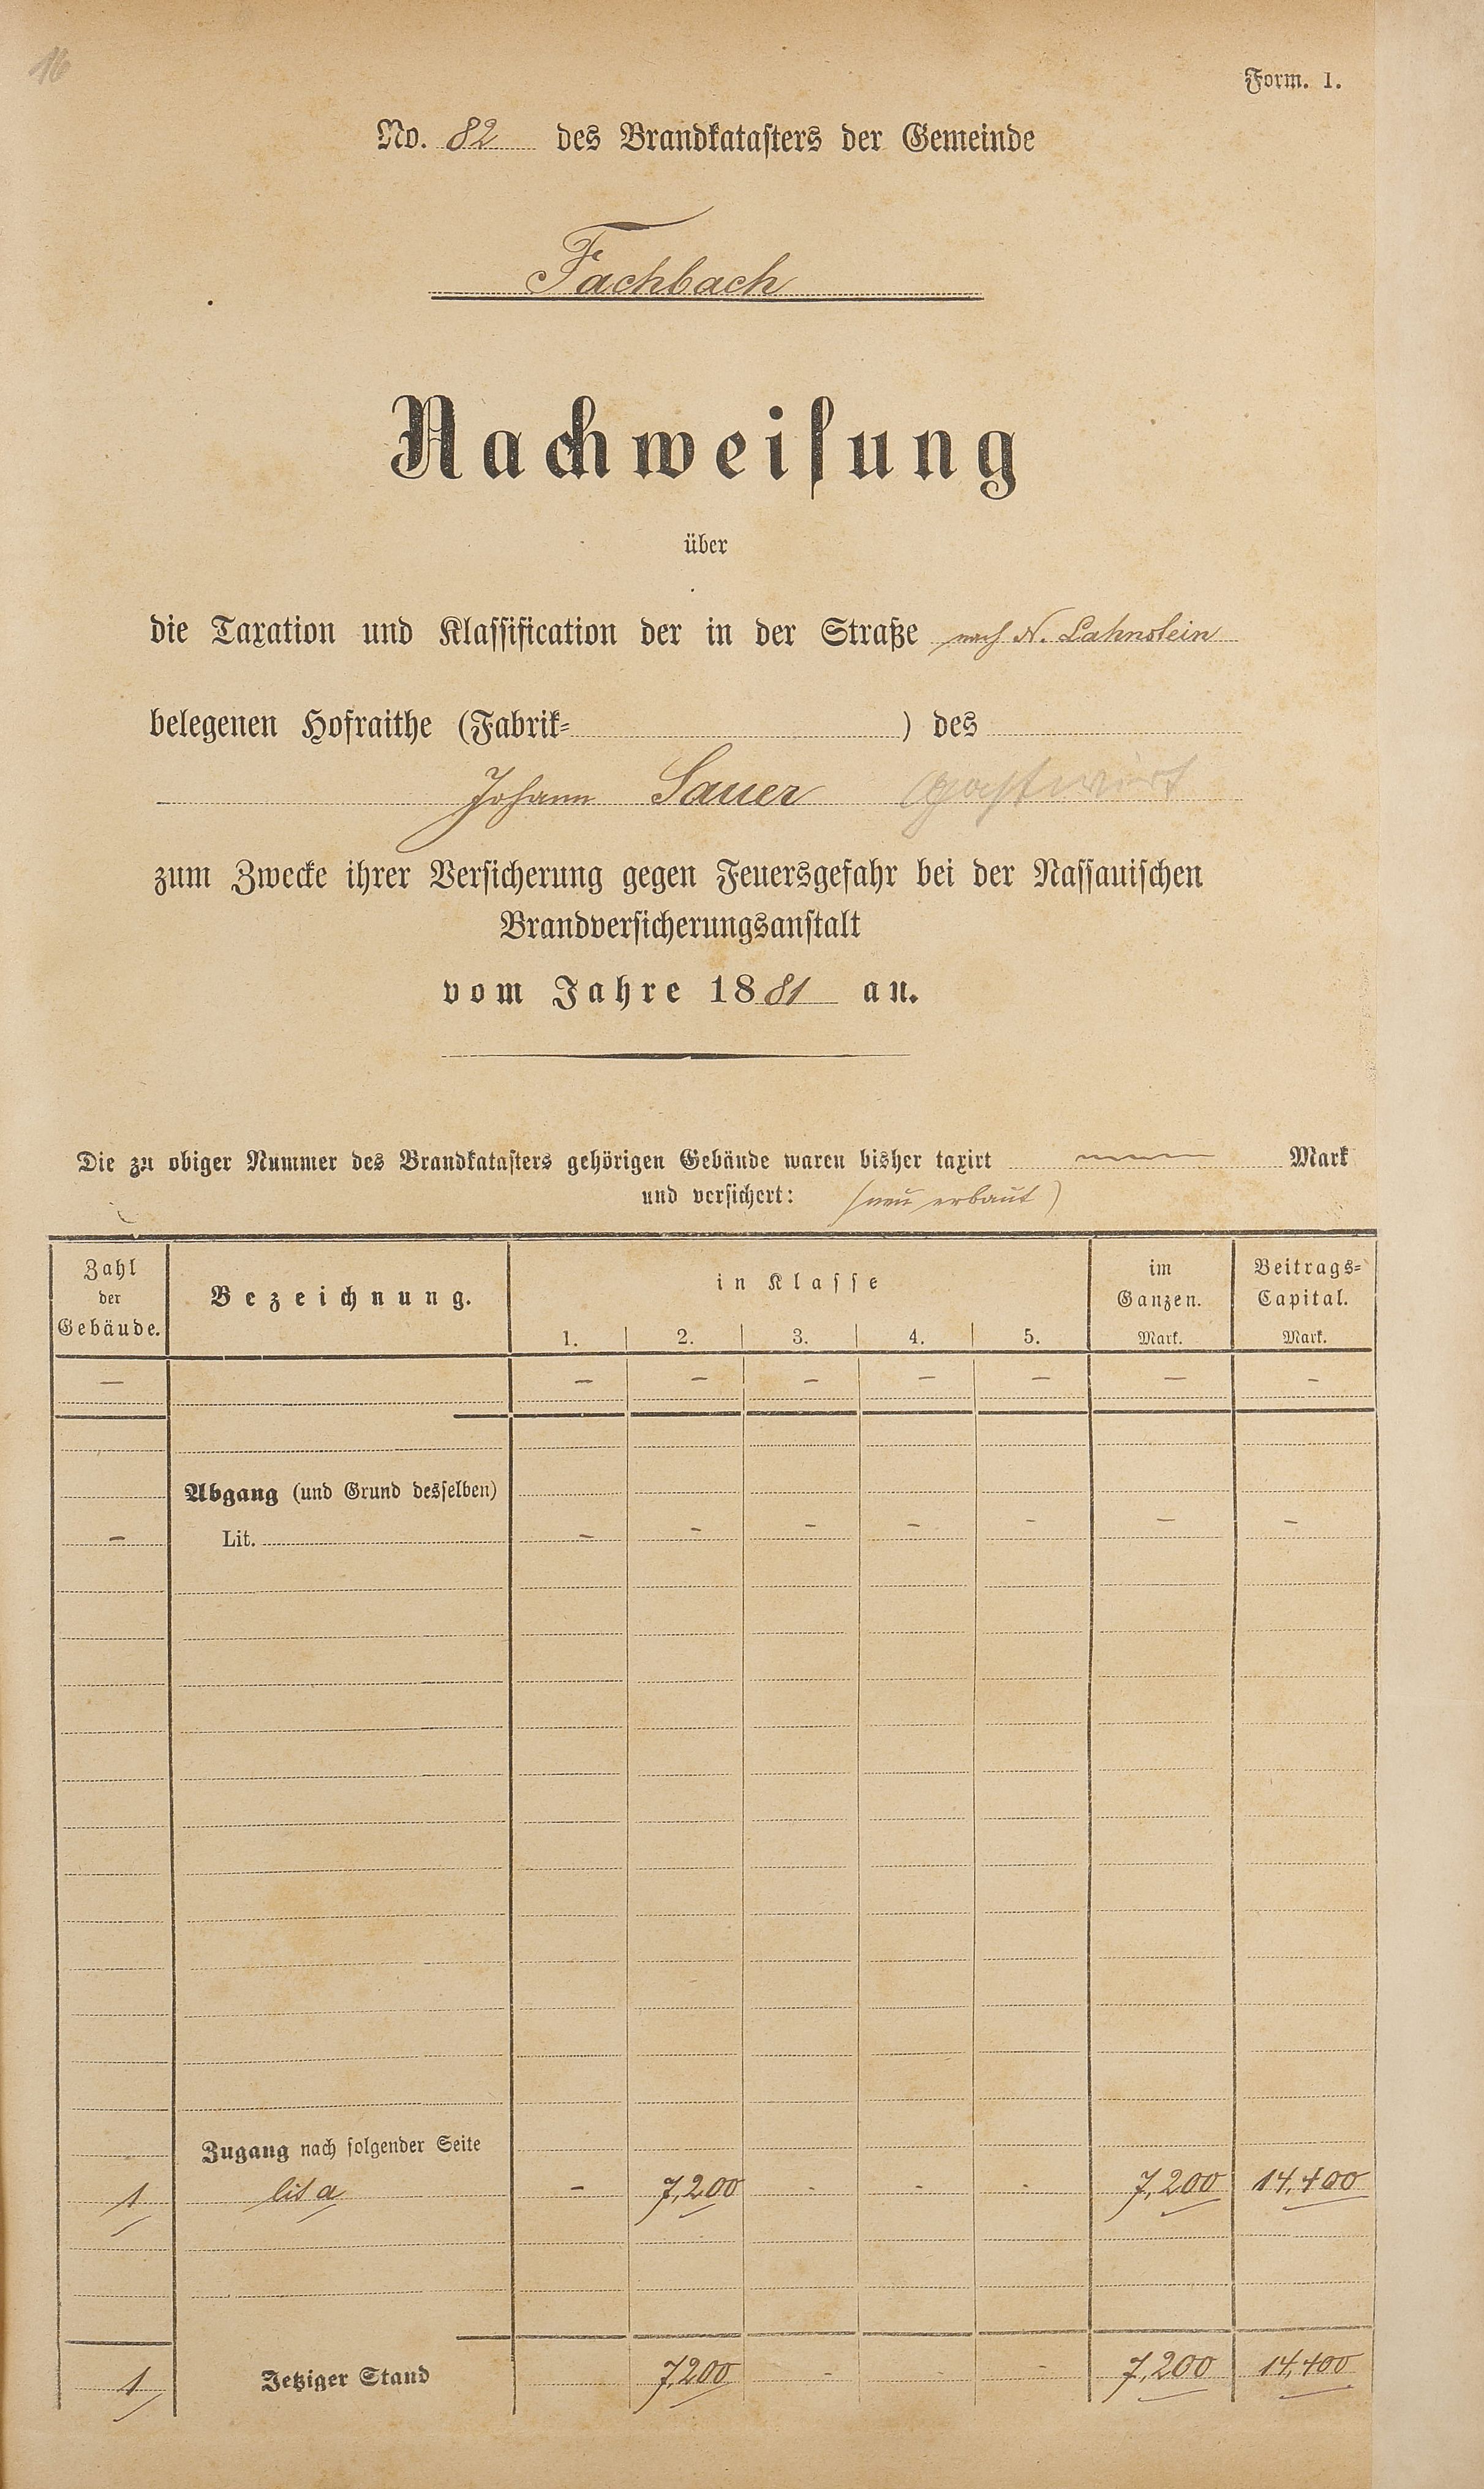 16
Form. 1.
No. 82 des Brandkatasters der Gemeinde
Fachbach
Nachweisung
über
die Taxation und Klassification der in der Straße nach N. Lahnstein
belegenen Hofraithe (Fabrik- ) des
Johann Sauer Gastwirt
zum Zwecke ihrer Versicherung gegen Feuersgefahr bei der Nassauischen
Brandversicherungsanstalt
vom Jahre 1881 an.
Die zu obiger Nummer des Brandkatasters gehörigen Gebäude waren bisher taxirt Mark
und versichert: (neu erbaut)
Zahl der Gebäude. Bezeichnung. in Klasse im Ganzen. Beitrags-Capital.
1. 2. 3. 4. 5. Mark. Mark.
— – – – – – — –
Abgang (und Grund desselben)
– Lit. – – – – – – –
Zugang nach folgender Seite
1 lit a – 7,200 - - - 7,200 14,400
1 Jetziger Stand 7,200 - - - 7,200 14,400